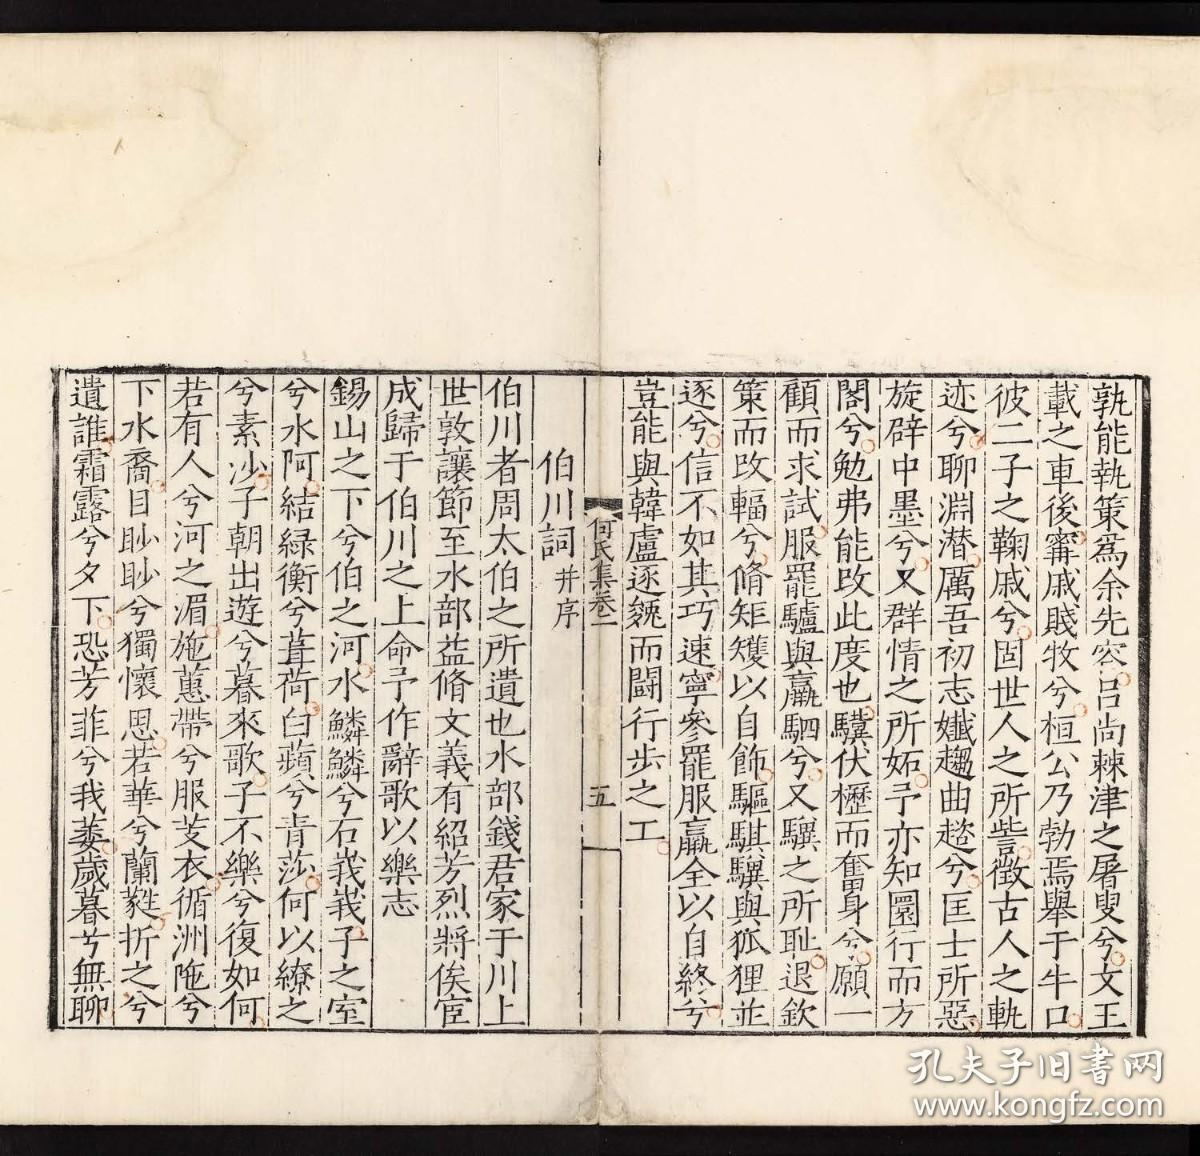 孰能執策爲余先容呂尚棘津之屠叟兮文王
載之車後甯戚賤牧兮桓公乃勃焉舉于牛口
彼二子之鞠戚兮固世人之所訾徵古人之軌
迹兮聊淵潛厲吾初志孅趨曲趦兮匡士所惡
旋辟中墨兮又群情之所妬予亦知圜行而方
閣兮勉弗能改此度也驥伏櫪而奮身兮願一
顧而求試服罷驢與羸駟兮又驥之所耻退欽
策而改輻兮脩矩矱以自飾驅騏驥與狐狸並
逐兮信不如其巧速寧參罷服羸全以自終兮
豈能與韓盧逐㕙而鬪行步之工
何氏集卷一
五
伯川詞 并序
伯川者周太伯之所遺也水部錢君家于川上
世敦讓節至水部益脩文義有紹芳烈將俟宦
成歸于伯川之上命予作辭歌以樂志
錫山之下兮伯之河水鱗鱗兮石峩峩子之室
兮水阿結綠衡兮葺荷白蘋兮青莎何以繚之
兮素沙子朝出遊兮暮來歌子不樂兮復如何
若有人兮河之湄施蕙帶兮服芰衣循洲陁兮
下水裔目眇眇兮獨懷思若華兮蘭蕤折之兮
遺誰霜露兮夕下恐芳菲兮我萎歲暮兮無聊
孔夫子旧书网
www.kongfz.com